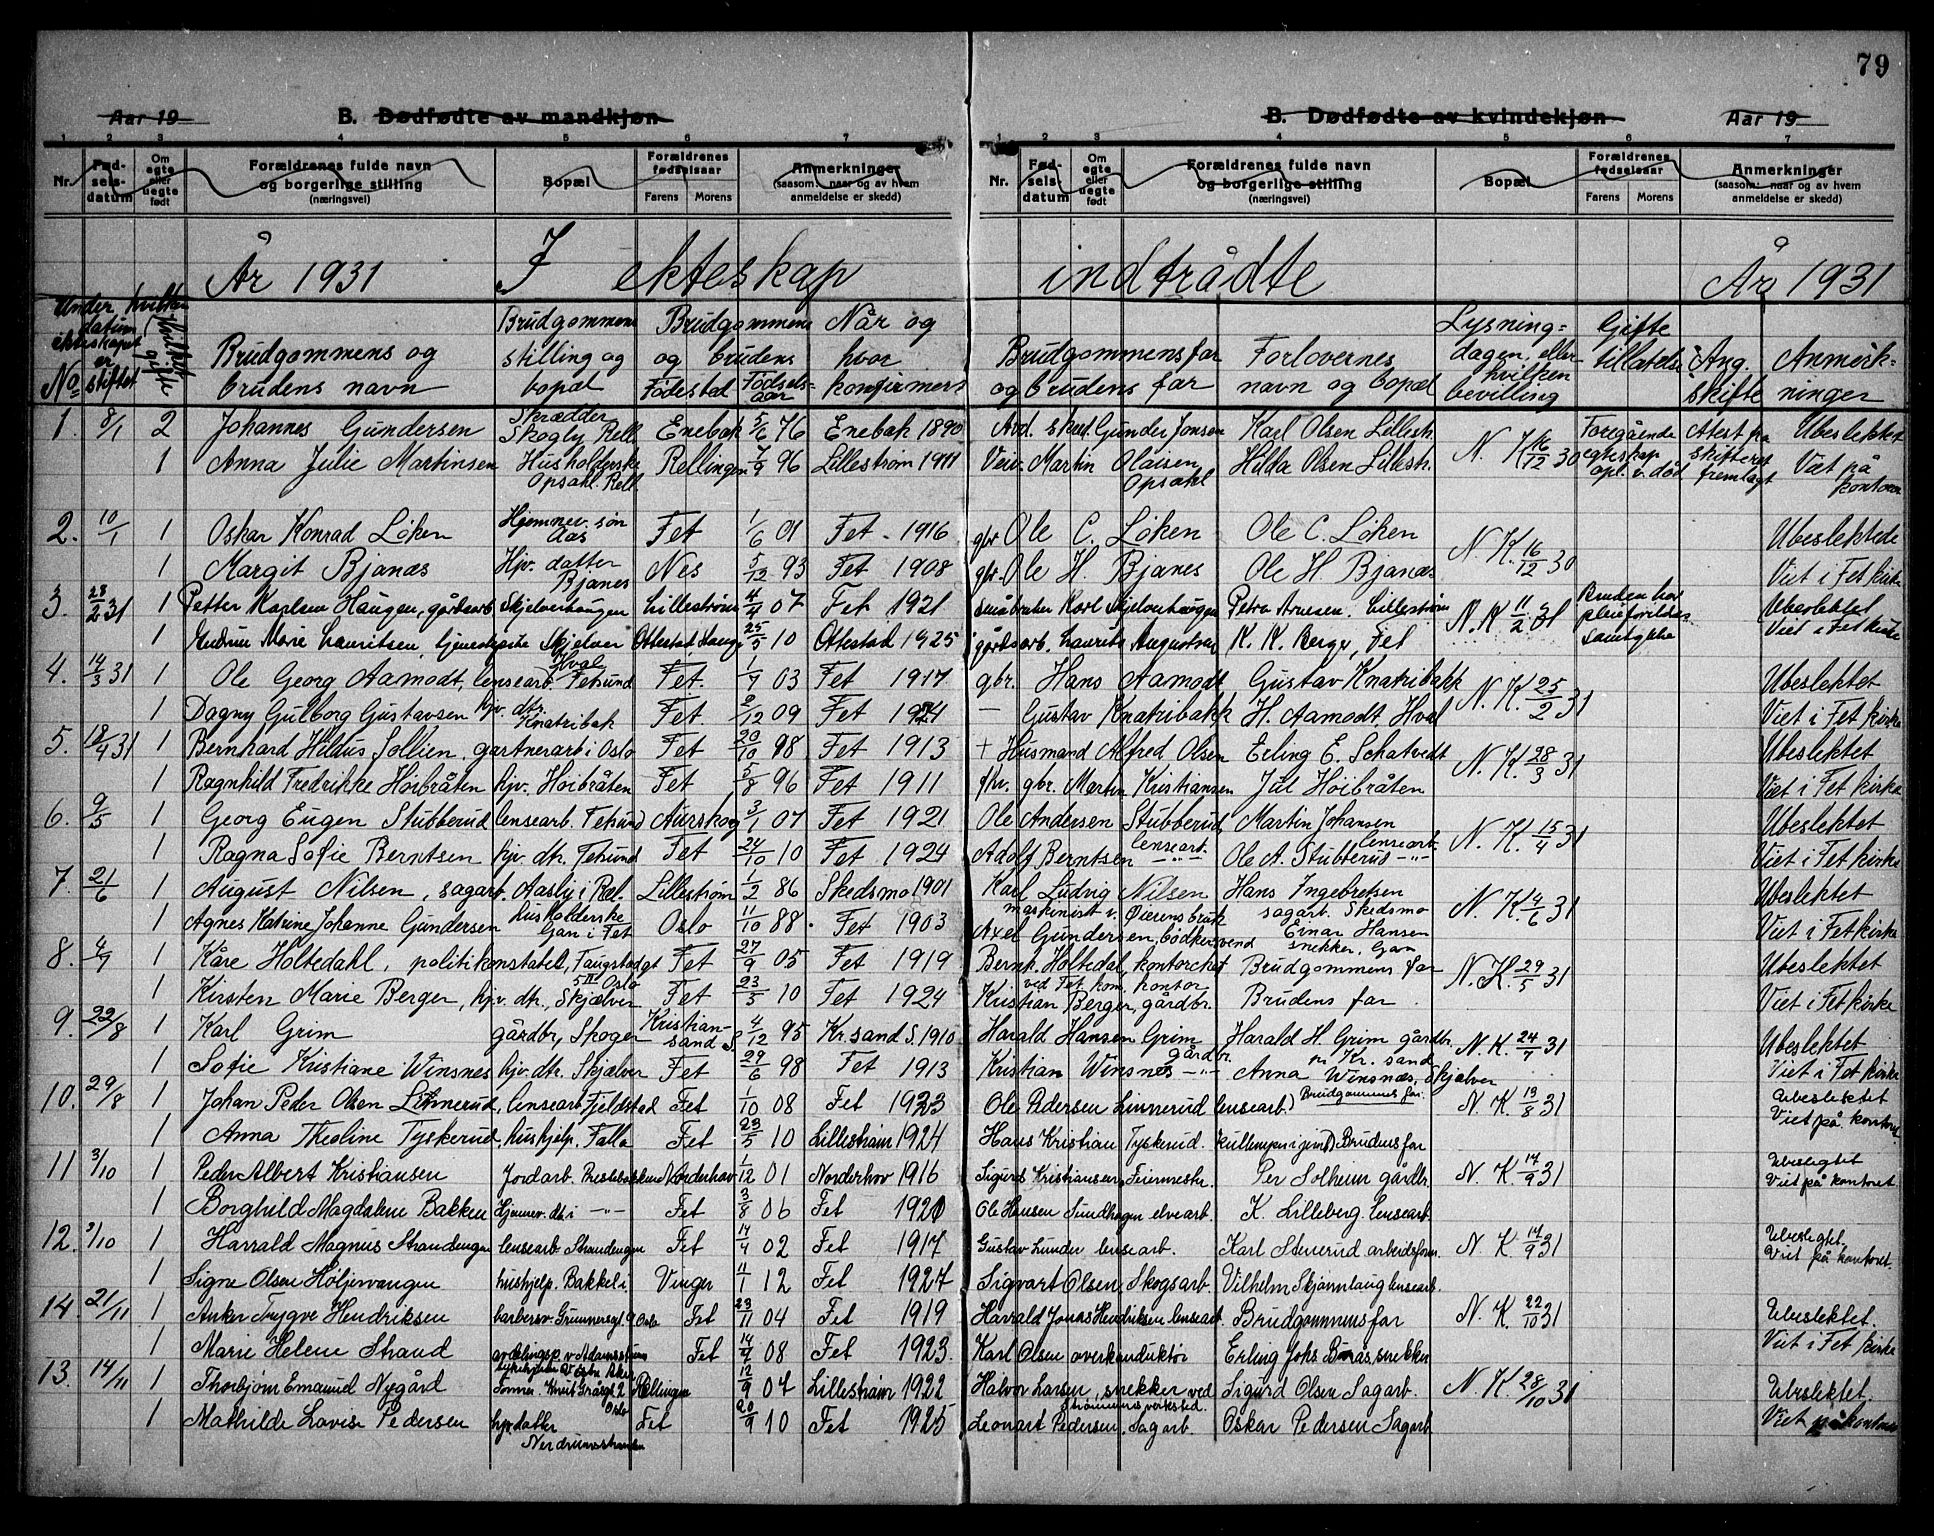 79
Aar 19 B. Dødfødte av mandkjøn B. Dødfødte av kvindekjøn Aar 19
1 2 3 4 5 6 7 1 2 3 4 5 6 7
Nr. Fød-selsdatum Om egte eller uegte født Forældrenes fulde navn og borgerlige stilling (næringsvei) Bopæl Forældrenes fødselsaar Farens Morens Anmerkninger (saasom: naar og av hvem anmeldelse er skedd)
Nr. Fød-selsdatum Om egte eller uegte født Forældrenes fulde navn og borgerlige stilling (næringsvei) Bopæl Forældrenes fødselsaar Farens Morens Anmerkninger (saasom: naar og av hvem anmeldelse er skedd)
År 1931 I ekteskap indtrådte År 1931
No Under hvilken datum ekteskapet er stiftet hvilket gifte Brudgommens og brudens navn Brudgommens stilling og bopæl Brudgommens og brudens Fødested Fødsels-aar Når og hvor konfirmert Brudgommens far og brudens far Forlovernes navn og bopæl Lysning-dagen, eller hvilken bevilling Gifte tillatelse Ang. skifte Anmerk-ninger
1. 8/1 2 Johannes Gundersen Skrædder Skogly Rell. Enebak 5/6 76 Enebak 1890 Arb. Gunder Jonsen Karl Olsen Lillestr. N. K 16/12 30 Foregående egteskap opl. v. død Atest fra skifteret fremlagt Ubeslektet
1 Anna Julie Martinsen Husholderske Opsahl. Rell. Rellingen 7/9 96 Lillestrøm 1911 Martin Olaisen Opsahl Hilda Olsen Lillestr. Viet på kontoret
2. 10/1 1 Oskar Konrad Löken Hjemmev. søn Aas Fet 1/6 01 Fet - 1916 gbr Ole C. Löken Ole C. Löken N. K. 16/12 30 Ubeslektede
1 Margit Bjanæs Hjv. datter Bjanes Nes 5/12 93 Fet 1908 gbr. Ole H. Bjanes Ole H. Bjanæs Viet i Fet kirke
3. 28/2 31 1 Petter Karlsen Haugen, gårdsarb Skjelverhaugen Lillestrøm 4/4 07 Fet 1921 småbruker Karl Skjelverhaugen Petra Arnesen. Lillestrøm N. K. 11/2 31 Bruden har pleieforeldres samtykke Ubeslektet
1 Gudrun Marie Lauritsen, tjenestepike Skjelver Ottestad Stange 25/5 10 Ottestad 1925 gårdsarb. Laurits Augustsen K. K. Berger, Fet Viet i Fet kirke
4. 14/3 31 1 Ole Georg Aamodt, lensearb. Hval Fetsund Fet. 1/7 03 Fet 1917 gbr. Hans Aamodt Gustav Knatribakk N. K. 25/2 31 Ubeslektet
1 Dagny Gulborg Gustavsen hjv. dtr. Knatribak Fet. 2/12 09 Fet 1924 — Gustav Knatribakk H. Aamodt, Hval Viet i Fet kirke
5. 18/4 31 1 Bernhard Hilaus Sollien, gartnerarb i Oslo Fet 20/10 98 Fet 1913 + Husmand Alfred Olsen Erling E. Schatvedt N. K. 28/3 31 Ubeslektet
1 Ragnhild Fredrikke Höibråten hjv. Höibråten Fet 5/8 96 Fet 1911 fhv. gbr. Martin Kristiansen Jul Höibråten Viet i Fet kirke
6. 9/5 1 Georg Eugen Stubberud lensearb. Fetsund Aurskog 3/1 07 Fet 1921 Ole Andersen Stubberud lensearb. Martin Johansen lensearb. N. K. 15/4 31 Ubeslektet
1 Ragna Sofie Berntsen hjv. dtr. Fetsund Fet 24/10 10 Fet 1924 Adolf Berntsen —"— Ole A. Stubberud —"— Viet i Fet kirke
7. 21/6 1 August Nilsen, sagarb. Aasly i Ræl. Lillestrøm 1/2 86 Skedsmo 1901 Karl Ludvig Nilsen maskinist v. bruk Hans Ingebretsen sagarb. Skedsmo N. K 4/6 31 Ubeslektet
1 Agnes Katrine Johanne Gundersen husholderske Gan i Fet Oslo 11/10 88. Fet 1903 Axel Gundersen, bödkersvend Einar Hansen snekker, Gan Viet i Fet kirke
8. 4/7 1 Kåre Holtedahl, politikonstabel, Oslo Fet 27/9 05 Fet 1919 Bernh. Holtedal, kontorchef ved Fet kom. kontor Brudgommens far N. K. 29/5 31 Ubeslektet
1 Kirsten Marie Berger, hjv. dtr. Skjælver Fet 23/3 10 Fet 1924 Kristian Berger, gårdbr. Brudens far. Viet i Fet kirke
9. 22/8 1 Karl Grim gårdbr, Skoger Kristian-sand S. 4/12 95 Kr.sand S. 1910 Harald Hansen Grim gårdbr. Harald H. Grim gårdbr. pr Kr. sand N. K. 24/7 31 Ubeslektet
1 Sofie Kristiane Winsnes hjv. dtr. Skjælver Fet 29/6 98 Fet 1913 Kristian Winsnes —"— Anna Winsnæs, Skjelver Viet i Fet kirke
10. 29/8 1 Johan Peder Olsen Linnerud, lensearb. Fjeldstad Fet 1/10 08 Fet 1923 Ole Pedersen Linnerud lensearb. Brudgommens far. N. K. 13/8 31 Ubeslektet
1 Anna Theoline Tyskerud, hushjelp. Falla Fet 23/5 10 Lillestrøm 1924 Hans Kristian Tyskerud. Brudens far Viet på kontoret
11 3/10 1 Peder Albert Kristiansen Jordarb. Prestebakken Norderhov 1/12 01 Norderhov 1916 Sigurd Kristiansen, Feiermester Per Solheim gårdbr. N. K. 14/9 31 Ubeslegtet
1 Borghild Magdalene Bakken Hjemmev. dt. i —"— Fet 3/8 06 Fet 1920 Ole Hansen Sundhagen elvearb. K. Lilleberg lensearb. Viet på kontoret
12. 3/10 1 Harrald Magnus Strandengen lensearb. Strandengen Fet 14/4 02 Fet 1917 Gustav Lunder lensearb. Karl Stenerud arbeidsform. N. K 14/9 31 Ubeslegtet.
1 Signe Olsen Höljervangen hushjelp. Bakkeli Vinger 11/1 12 Fet 1927 Sigvart Olsen, Skogsarb. Vilhelm Skjønnhaug lensearb. Viet på kontoret.
14. 21/11 1 Anker Trygve Hendriksen barbersv. Grunnersgt. 9 Oslo Fet 23/11 04 Fet 1919 Harrald Jonas Hendriksen lensearb Brudgommens far N. K. 22/10 31 Ubeslektet.
1 Marie Helene Strand Fet 14/4 08 Fet 1923. Karl Olsen overkonduktør Erling Johs Bråås, snekker Viet i Fet kirke
13. 14/11 1 Thorbjørn Emanuel Nygård Oslo Rellingen 12/9 04 Lillestrøm 1922 Halvor Larsen, snekker ved Strømmens verksted. Sigurd Olsen Sagarb. N. K. 28/10 31 Ubeslektet.
1 Mathilde Lovise Pedersen hjv. datter Nerdrumsstranden Fet 20/9 10 Fet 1925 Leonart Pedersen, Sagarb. Oskar Pedersen Sagarb Viet på kontoret